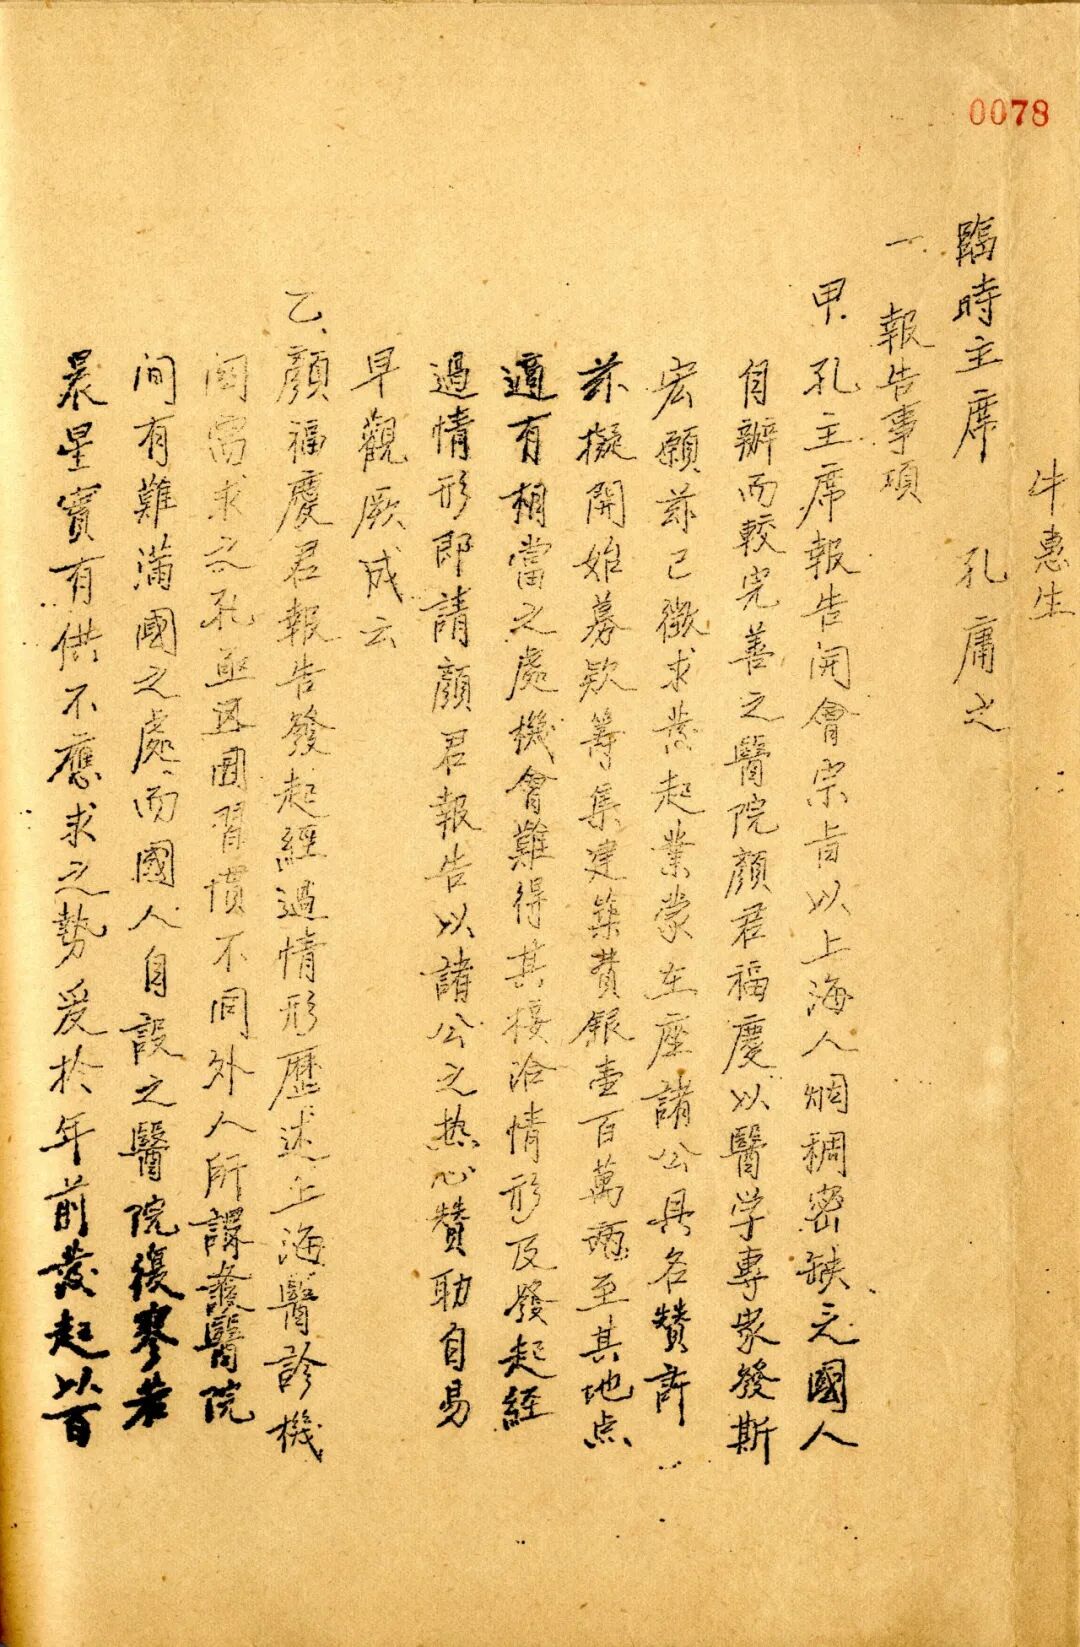 0078
牛惠生
臨時主席 孔庸之
一. 報告事項
甲. 孔主席報告開會宗旨以上海人烟稠密缺乏國人
自辦而較完善之醫院顏君福慶以醫学專家發斯
宏願茲已徵求發起業蒙在座諸公具名贊許
茲擬開始募欵籌集建築費銀壹百萬两至其地点
適有相當之處機會難得其接洽情形及發起經
過情形即請顏君報告以諸公之热心贊助自易
早觀厥成云
乙、顏福慶君報告發起經過情形歷述上海醫診機
関需求之孔亟因習慣不同外人所謀醫院
间有難滿國之處、而國人自設之醫院復寥若
晨星實有供不應求之势爰於年前發起以百